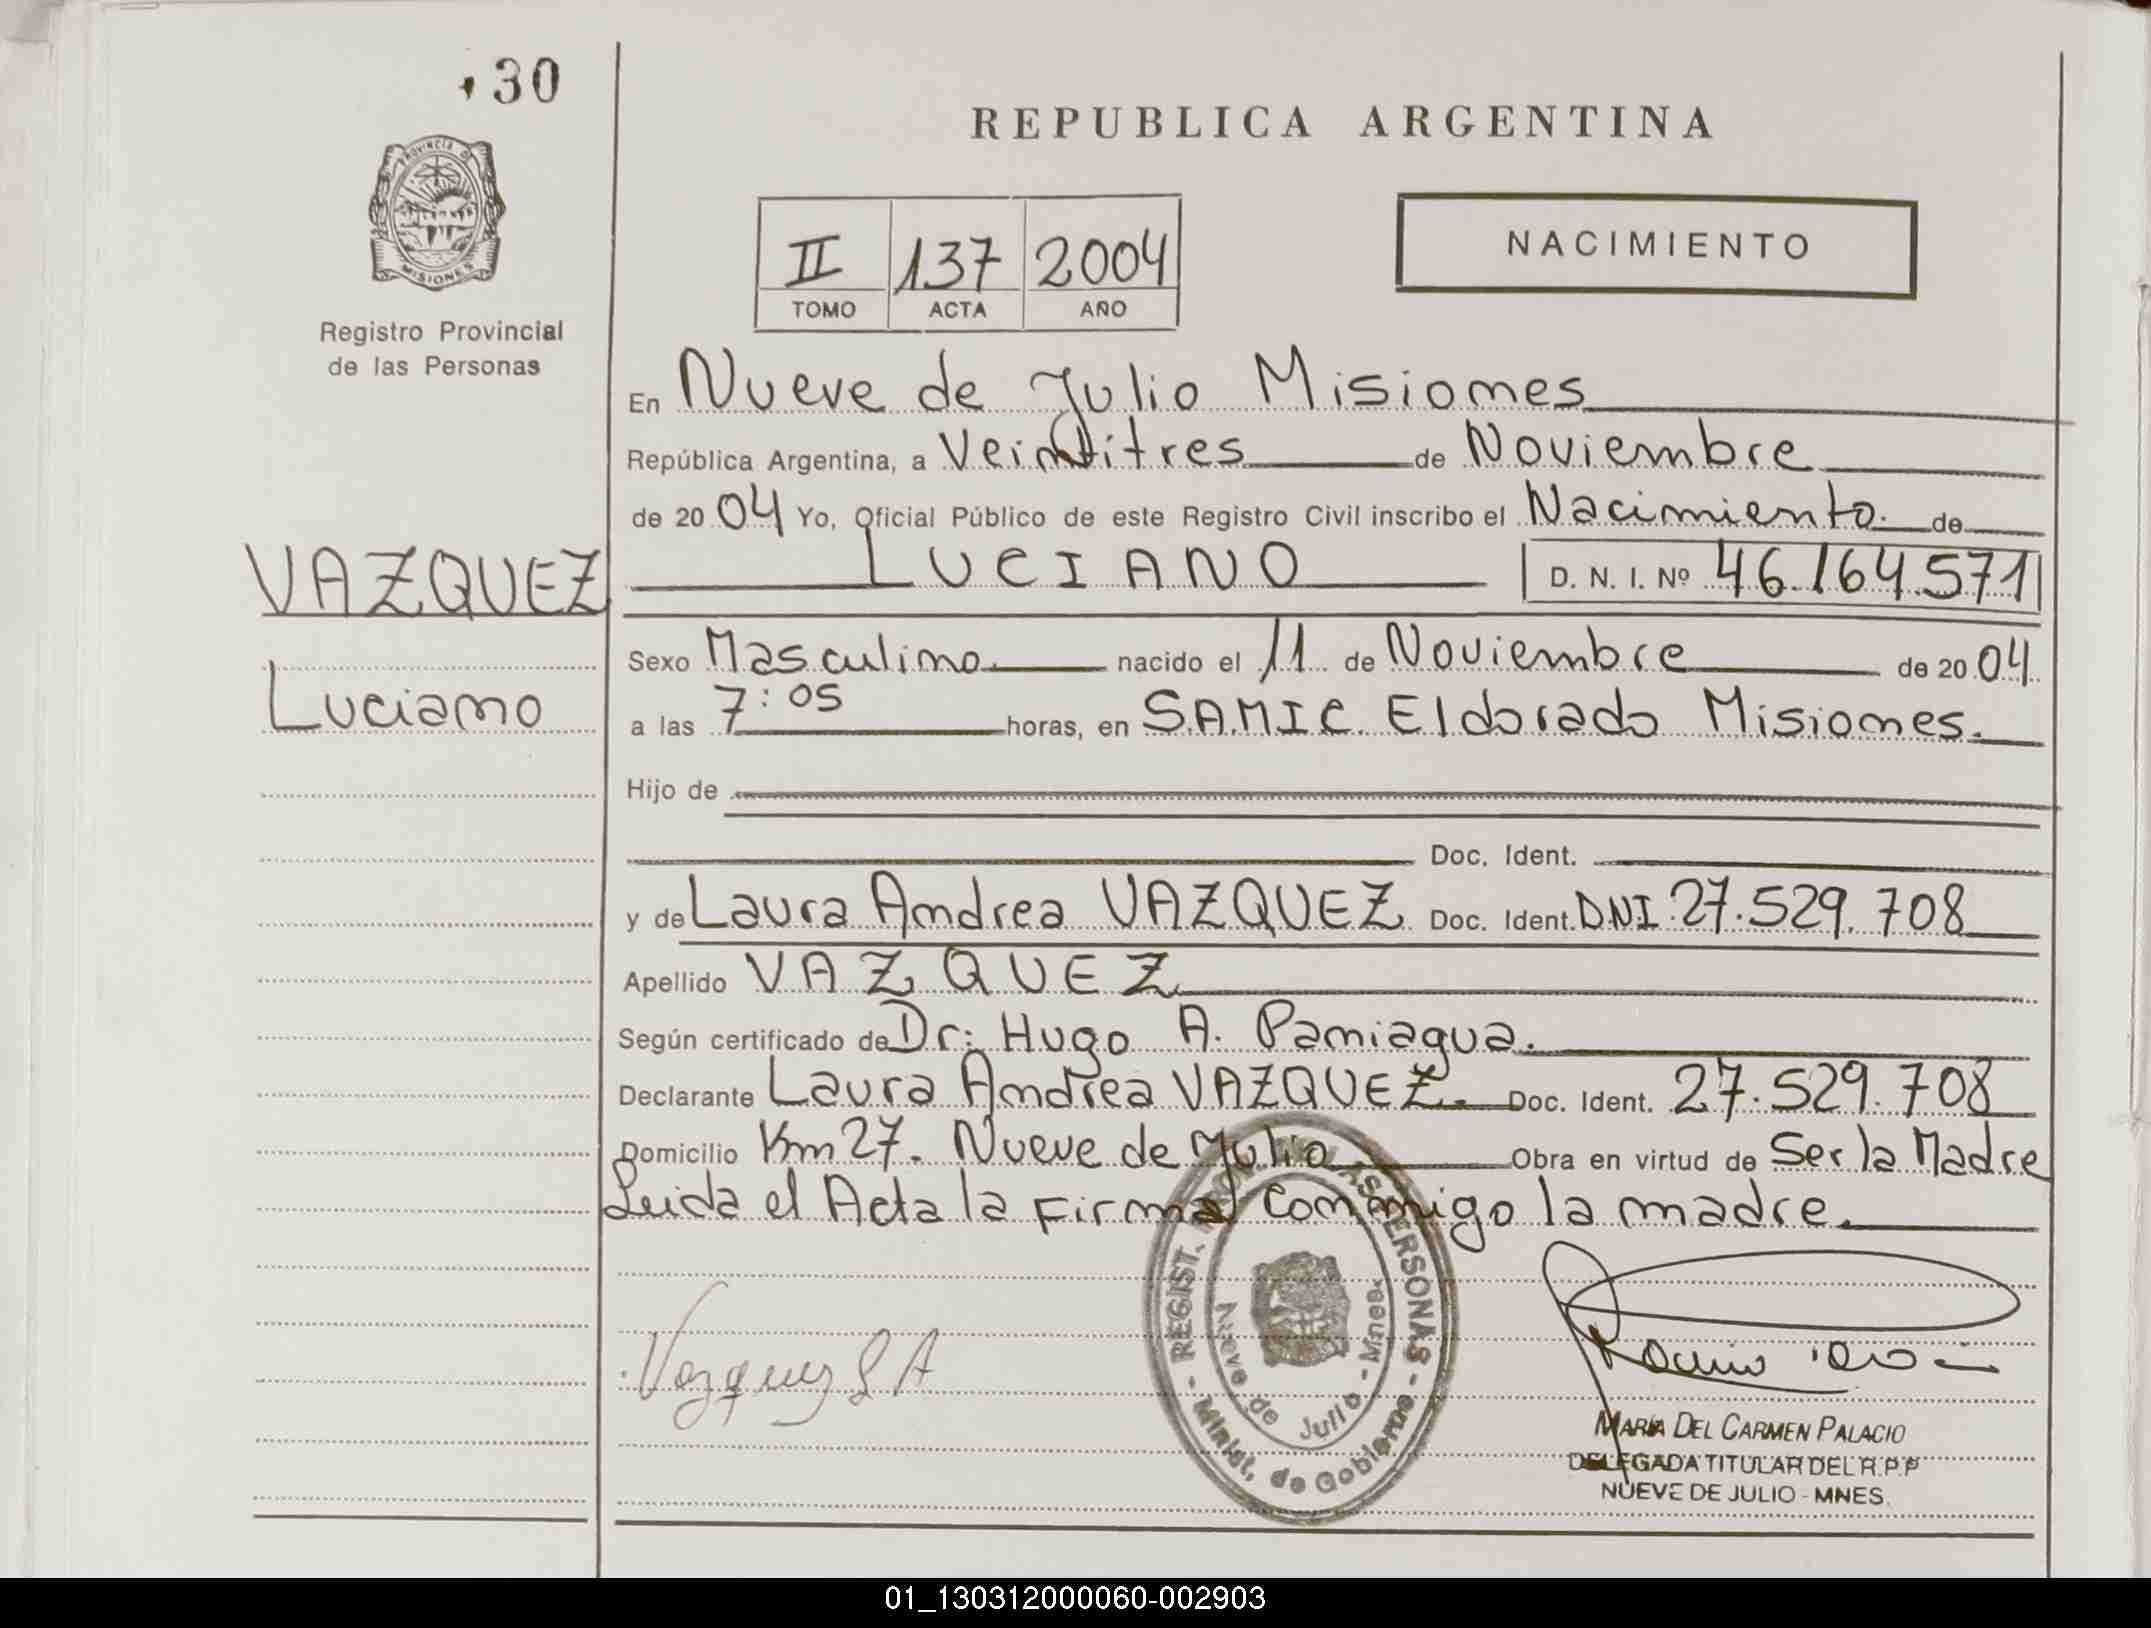 30
REPUBLICA ARGENTINA
PROVINCIA DE
MISIONES
II 137 2004
TOMO ACTA AÑO
NACIMIENTO
Registro Provincial
de las Personas
En Nueve de Julio Misiones
República Argentina, a Veintitres de Noviembre
de 20 04 Yo, Oficial Público de este Registro Civil inscribo el Nacimiento. de
VAZQUEZ
LUCIANO D. N. I. Nº 46.164.571
Sexo Masculino nacido el 11 de Noviembre de 20 04
Luciano
a las 7:05 horas, en S.A.M.I.C. Eldorado Misiones.
Hijo de
Doc. Ident.
y de Laura Andrea VAZQUEZ Doc. Ident. DNI 27.529.708
Apellido VAZQUEZ
Según certificado de Dr: Hugo A. Paniagua.
Declarante Laura Andrea VAZQUEZ. Doc. Ident. 27.529.708
Domicilio Km 27. Nueve de Julio Obra en virtud de Ser la Madre
Leida el Acta la Firma conmigo la madre.
Vazquez L A
REGIST. PERSONAS - Minist. de Gobierno -
Nueve de Julio - Mnes.
MARIA DEL CARMEN PALACIO
DELEGADA TITULAR DEL R.P.P
NUEVE DE JULIO - MNES.
01_130312000060-002903